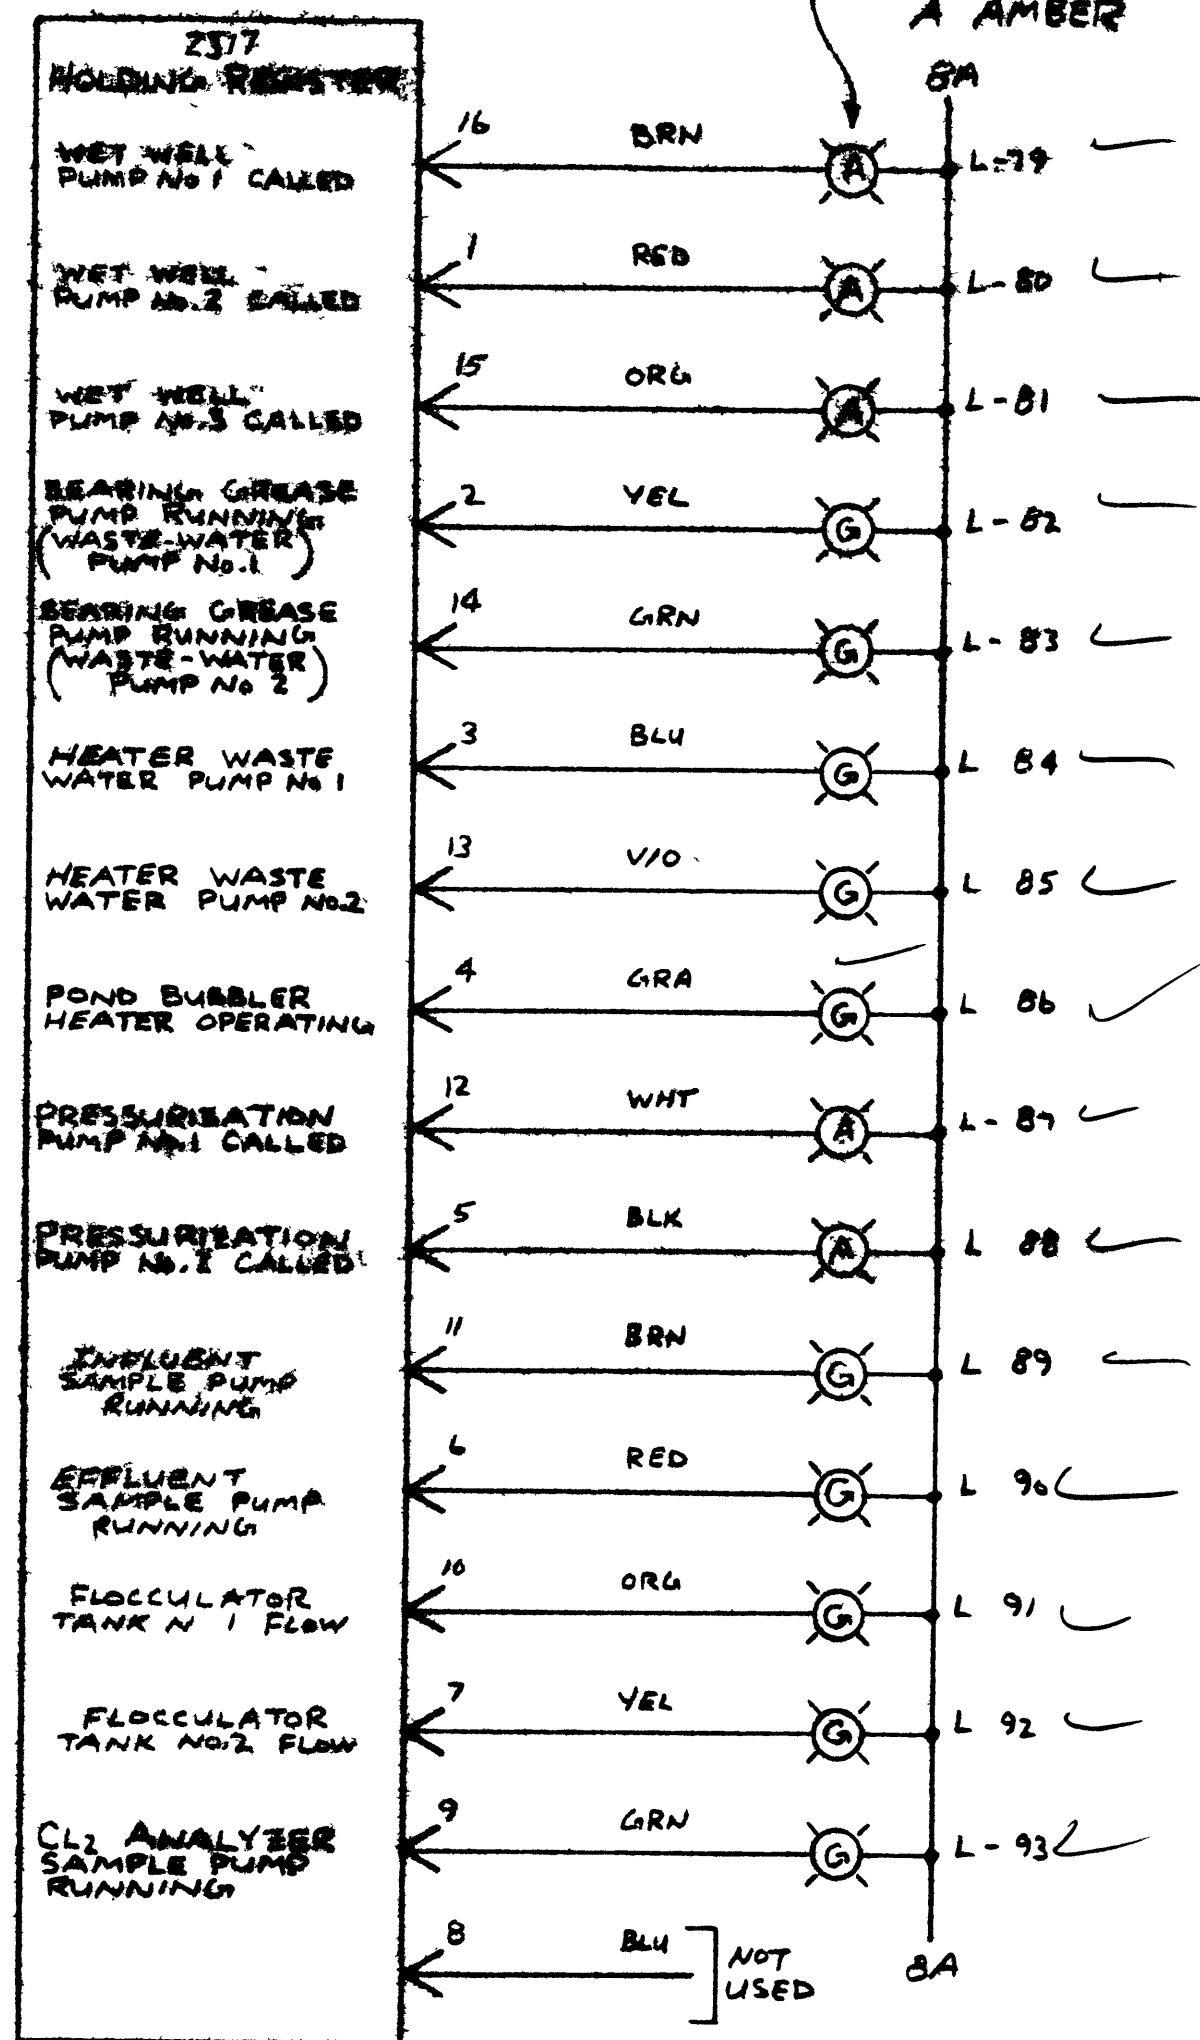 A AMBER
2517
HOLDING REGISTER
8A
WET WELL
PUMP No 1 CALLED
16
BRN
A
L-79
WET WELL
PUMP No.2 CALLED
1
RED
A
L-80
WET WELL
PUMP No.3 CALLED
15
ORG
A
L-81
BEARING GREASE
PUMP RUNNING
(WASTE-WATER)
PUMP No.1
2
YEL
G
L-82
BEARING GREASE
PUMP RUNNING
(WASTE-WATER)
PUMP No 2
14
GRN
G
L-83
HEATER WASTE
WATER PUMP No 1
3
BLU
G
L 84
HEATER WASTE
WATER PUMP No.2
13
VIO
G
L 85
POND BUBBLER
HEATER OPERATING
4
GRA
G
L 86
PRESSURIZATION
PUMP No.1 CALLED
12
WHT
A
L-87
PRESSURIZATION
PUMP No. CALLED
5
BLK
A
L 88
INFLUENT
SAMPLE PUMP
RUNNING
11
BRN
G
L 89
EFFLUENT
SAMPLE PUMP
RUNNING
6
RED
G
L 90
FLOCCULATOR
TANK N 1 FLOW
10
ORG
G
L 91
FLOCCULATOR
TANK No.2 FLOW
7
YEL
G
L 92
CL2 ANALYZER
SAMPLE PUMP
RUNNING
9
GRN
G
L-93
8
BLU
NOT
USED
8A